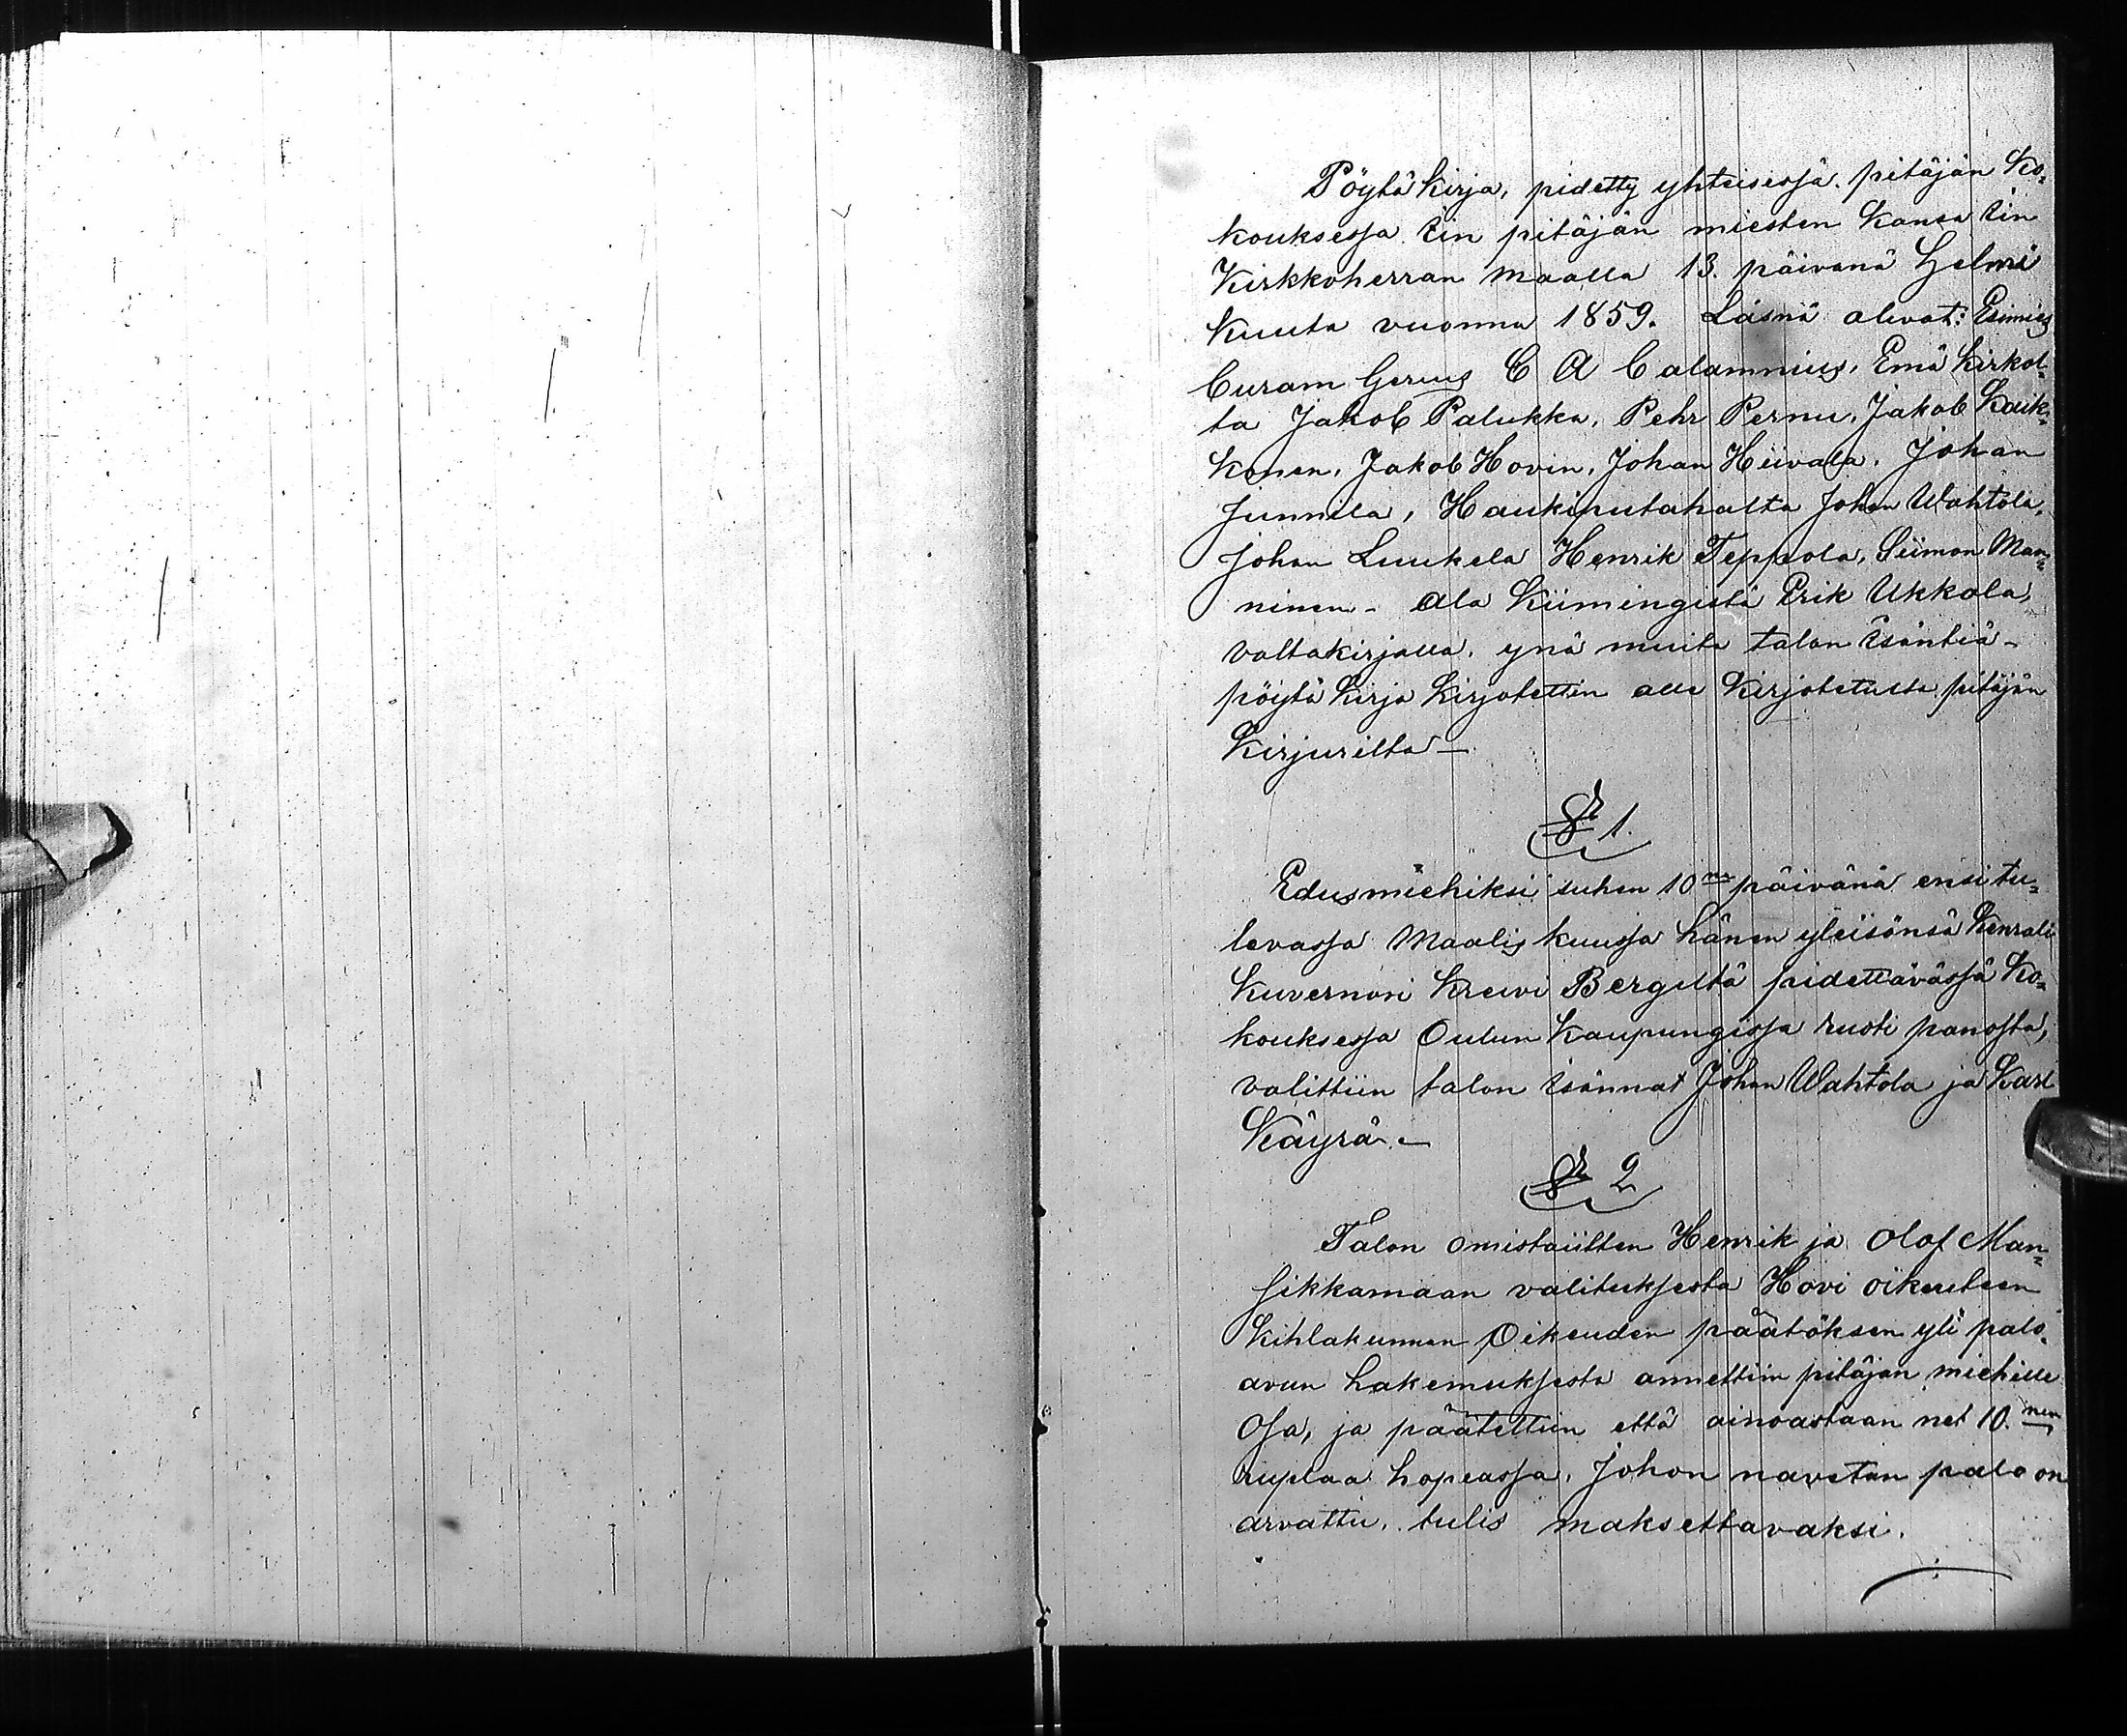 Pöytä Kirja, pidetty yhteisessä pitäjän Ko-
kouksessa Iin pitäjän miesten Kansa Iin
Kirkkoherran maalla 13. päivänä Helmi
Kuuta vuonna 1859. Läsnä olivat: Esimies
Curam Gerens C A Calamnius, Emä Kirkol-
ta Jakob Palukka, Pehr Pernu, Jakob Kaik-
konen, Jakob Hovin, Johan Hiivala, Johan
Junnila, Haukiputahalta Johan Wahtola,
Johan Luukela Henrik Teppola, Siimon Man-
ninen - Ala Kiimingistä Erik Ukkola,
valtakirjalla, ynä muita talon Isäntiä -
pöytä Kirja Kirjotettin alle Kirjotetulta pitäjän
Kirjurilta -
§ 1.
Edusmiehiksi siihen 10 päivänä ensi tu-
levassa Maalis kuussa hänen yleisönsä Kenrali
Kuvernöri Kreivi Bergiltä pidettävässä Ko-
kouksessa Oulun Kaupungissa ruoti panosta,
valittiin talon Isännat Johan Wahtola ja Karl
Käyrä. -
§ 2
Talon omistaiitten Henrik ja Olof Man-
sikkamaan valituksesta Hovi oikeuteen
Kihlakunnan Oikeuden päätöksen yli palo-
avun hakemuksesta annettiin pitäjän miehille
Osa, ja päätettiin että ainoastaan net 10. nen
ruplaa hopeassa, Johon navetan palo on
arvattu, tulis maksettavaksi.